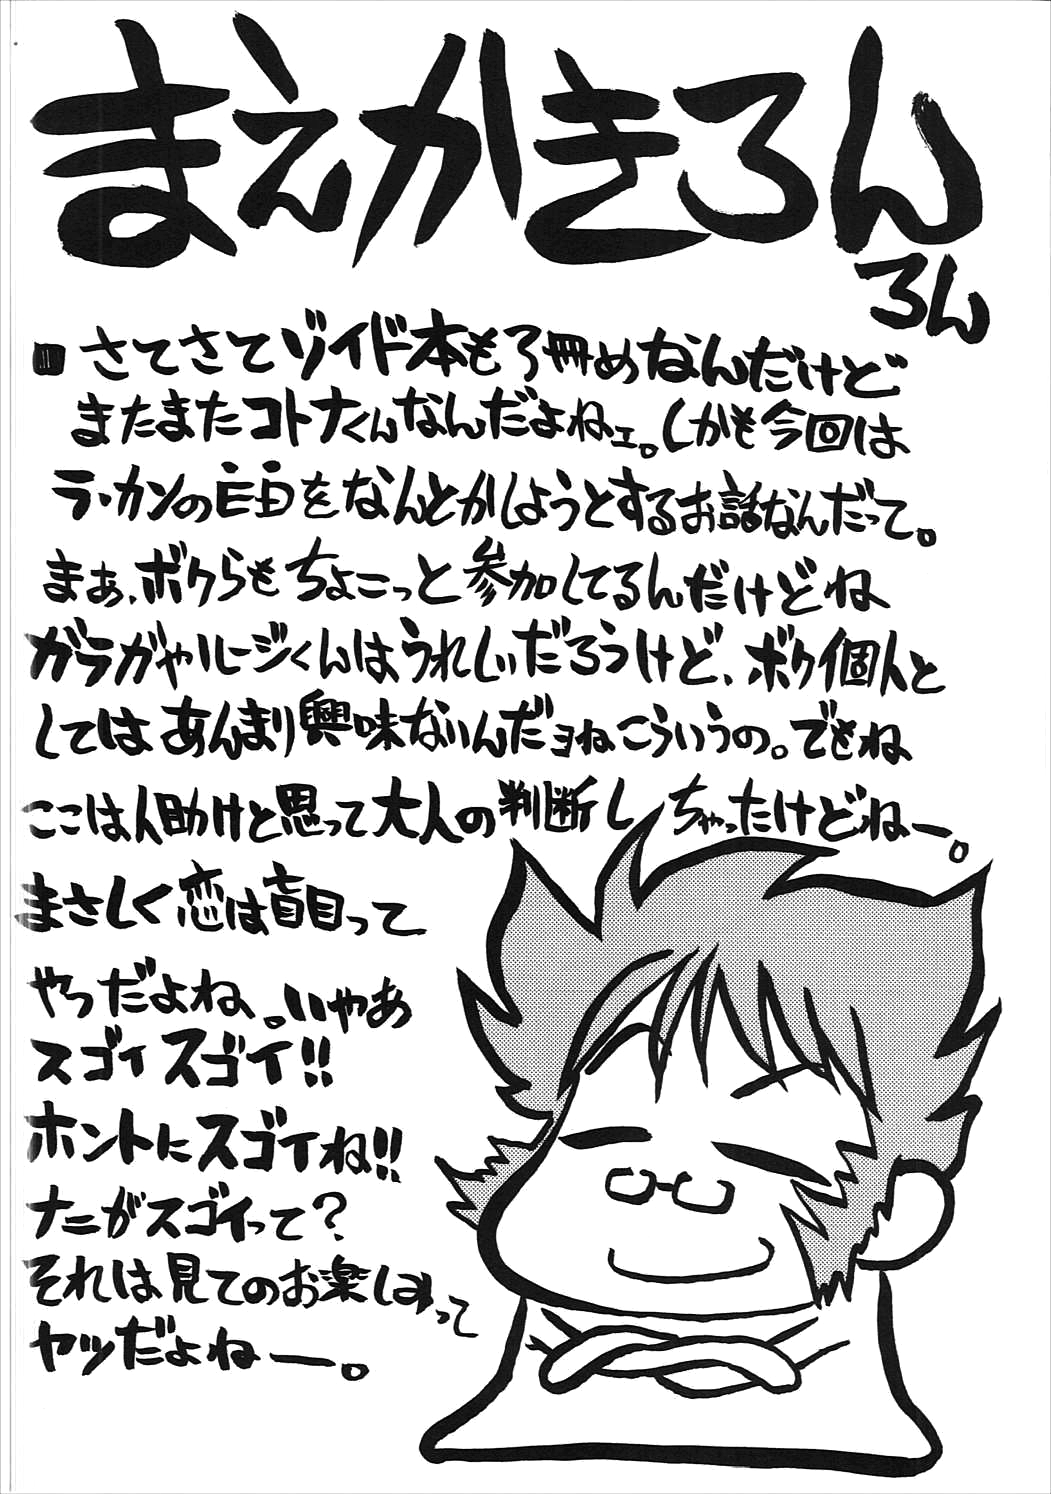 まえかきろん
ろん
■さてさてゾイド本も3冊めなんだけど
またまたコトナくんなんだよねェ。しかも今回は
ラ・カンのをなんとかしようとするお話なんだって。
まぁ、ボクらもちょこっと参加してるんだけどね
ガラガやルージくんはうれしいだろうけど、ボク個人と
してはあんまり興味ないんだョねこういうの。でもね
ここは人助けと思って大人の判断しちゃったけどねー。
まさしく恋は盲目って
やつだよね。いやあ
スゴイスゴイ!!
ホントにスゴイね!!
ナニがスゴイって?
それは見てのお楽しみって
ヤツだよねー。